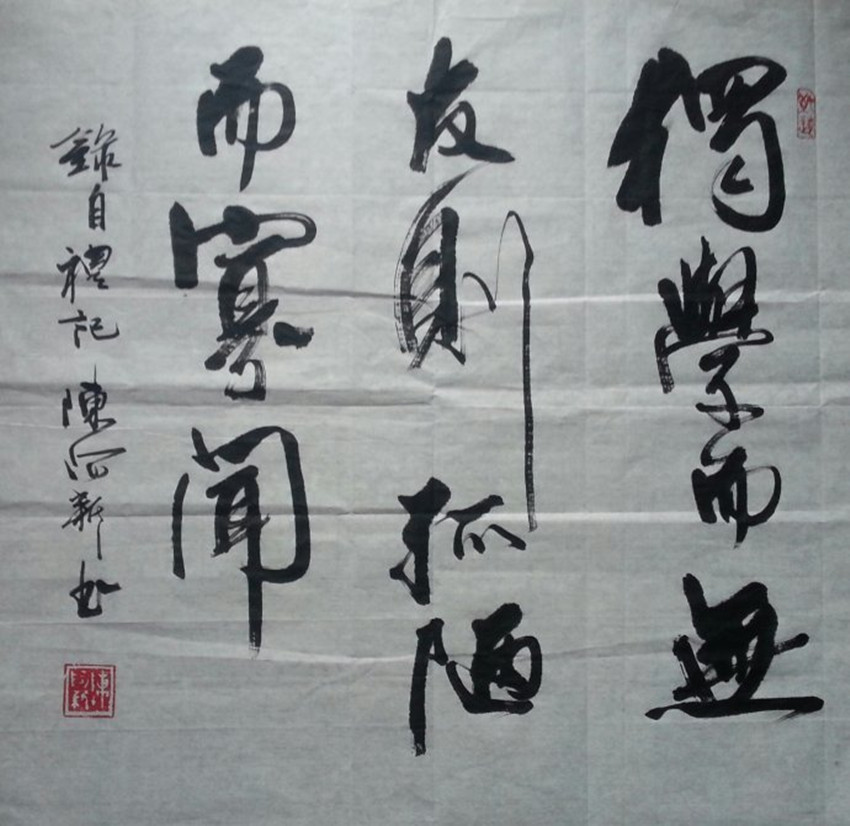 獨學而無
友則孤陋
而寡聞
錄自禮記 陳河新书